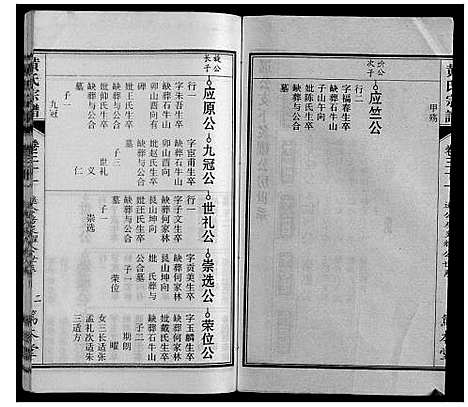 黄氏宗谱
卷三十一
次子
应竺公
行二
字福春生卒
缺葬石牛山
子山午向
妣陈氏生卒
缺葬与公合
甲殇
长子
应原公
字朱吾生卒
缺葬石牛山
卯山酉向有
碑
妣王氏生卒
缺葬与公合
妣帅氏生卒
缺葬与公合
墓
子一
九冠
九冠公
字宸甫生卒
缺葬石牛山
卯山酉向
妣赵氏生卒
缺葬与公合
墓
子三
世礼
义
仁
世礼公
字子文生卒
缺葬何家林
艮山坤向
妣汪氏生卒
缺葬与公合
墓
子一
崇选
崇选公
字贡美生卒
缺葬何家林
艮山坤向
妣氏生卒葬
公合墓
子一
荣位
荣位公
字玉麟生卒
缺葬何家林
艮山坤向
妣戴氏生卒
缺葬石牛山
子二
期朗
曜
女三长适张
孟礼次适朱
三适方
黄氏宗谱
二
笃本堂